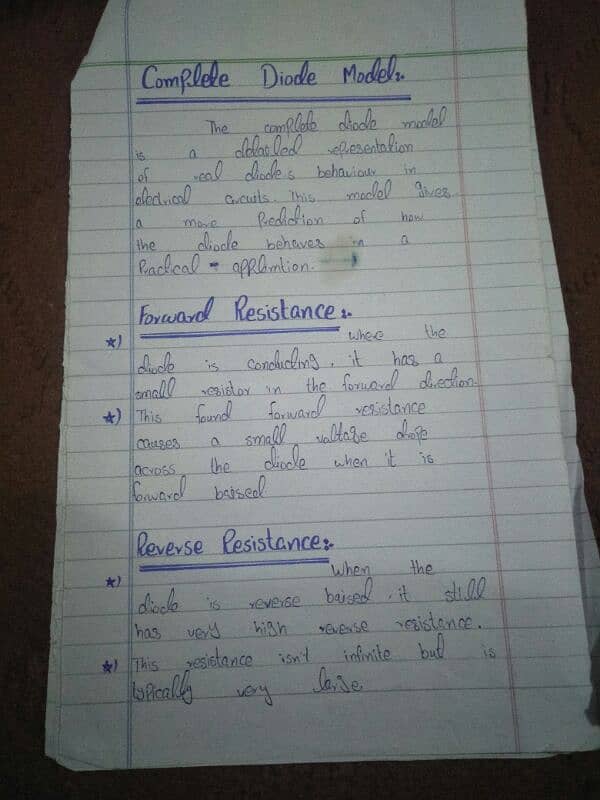 Complete Diode Model:-
The complete diode model
is a detailed representation
of real diode's behaviour in
electrical circuits. This model gives
a more Prediction of how
the diode behaves in a
Practical - applamtion.
Forward Resistance:-
*) where the
diode is conducting, it has a
small resistor in the forward direction.
*) This found forward resistance
causes a small voltage drope
across the diode when it is
forward baised
Reverse Resistance:-
*) When the
diode is reverse baised. it still
has very high reverse resistance.
*) This resistance isn't infinite but is
typically very large